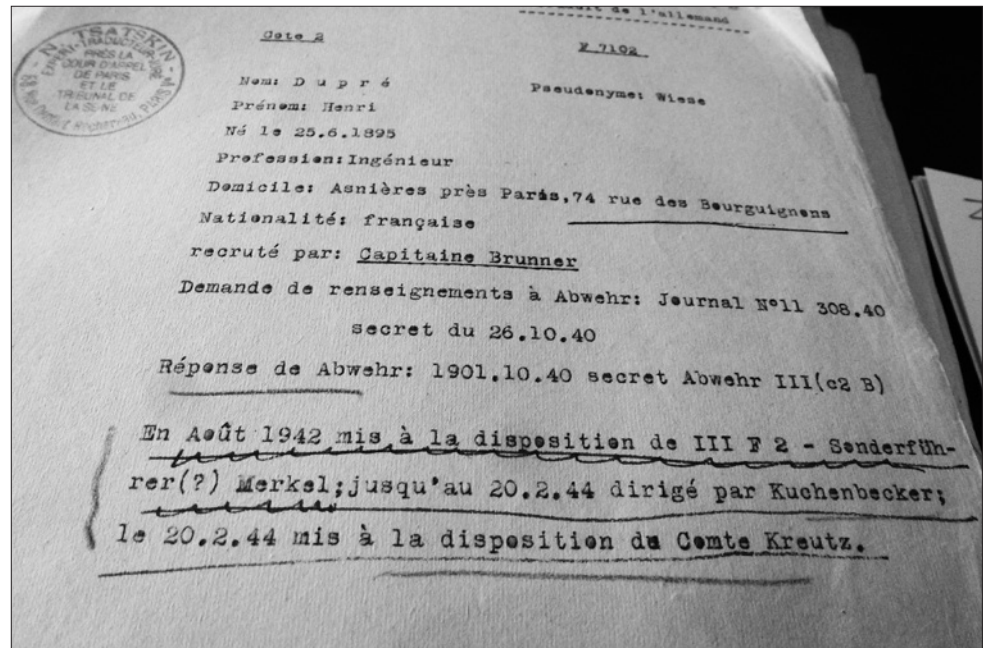 de l'allemand
Cote 2
F 7102
N. TSATSKIN
EXPERT-TRADUCTEUR-JURÉ
PRÈS LA
COUR D'APPEL
DE PARIS
ET LE
TRIBUNAL DE
LA SEINE
Rochereau, PARIS
Nom: D u p r é
Pseudonyme: Wiese
Prénom: Henri
Né le 25.6.1895
Profession:Ingénieur
Domicile: Asnières près Paris,74 rue des Bourguignons
Nationalité: française
recruté par: Capitaine Brunner
Demande de renseignements à Abwehr: Journal N°11 308.40
secret du 26.10.40
Réponse de Abwehr: 1901.10.40 secret Abwehr III(c2 B)
En Août 1942 mis à la disposition de III F 2 - Sonderfüh-
rer(?) Merkel;jusqu'au 20.2.44 dirigé par Kuchenbecker;
le 20.2.44 mis à la disposition du Comte Kreutz.